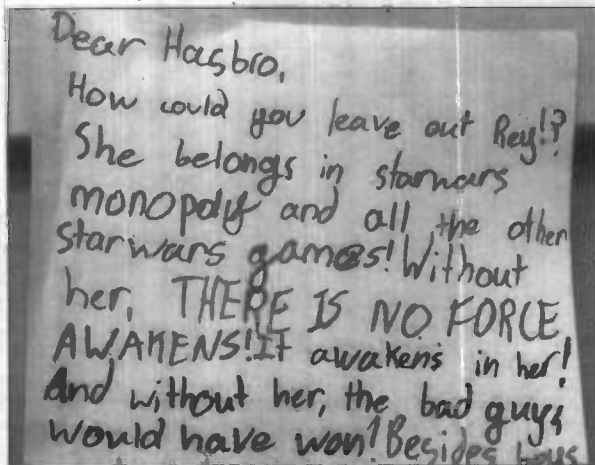 Dear Hasbro,
How could you leave out Rey!?
She belongs in starwars
monopoly and all the other
starwars games! Without
her, THERE IS NO FORCE
AWAKENS! It awakens in her!
And without her, the bad guys
would have won! Besides